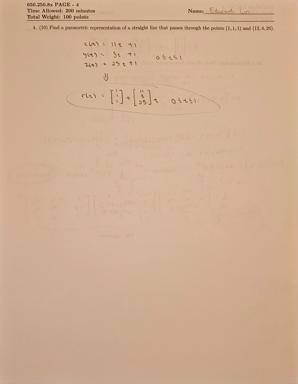 650.250.8x PAGE - 4
Time Allowed: 200 minutes
Total Weight: 100 points
Name:
4. (10) Find a parametric representation of a straight line that passes through the points (1, 1, 1) and (12, 4, 26).
x(t) = 11t +1
y(t) = 3t +1
z(t) = 25t +1
0≤t≤1
⇓
r(t) = [1 1 1] + [11 3 25] t 0≤t≤1